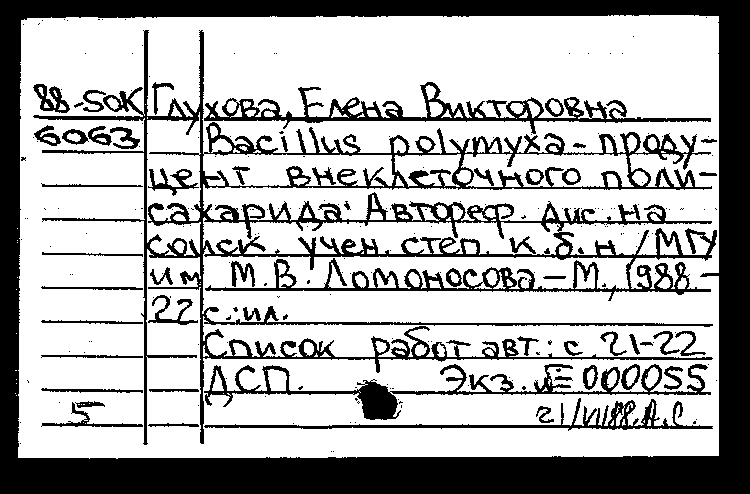 88-50К Глухова, Елена Викторовна
6063 Bacillus polymyxa - проду-
цент внеклеточного поли-
сахарида: Автореф. дис. на
соиск. учен. степ. к.б.н. / МГУ
им. М.В. Ломоносова. - М., 1988. -
22 с.: ил.
Список работ авт.: с. 21-22
ДСП. Экз. № 000055
5 21/VI 88. А.С.